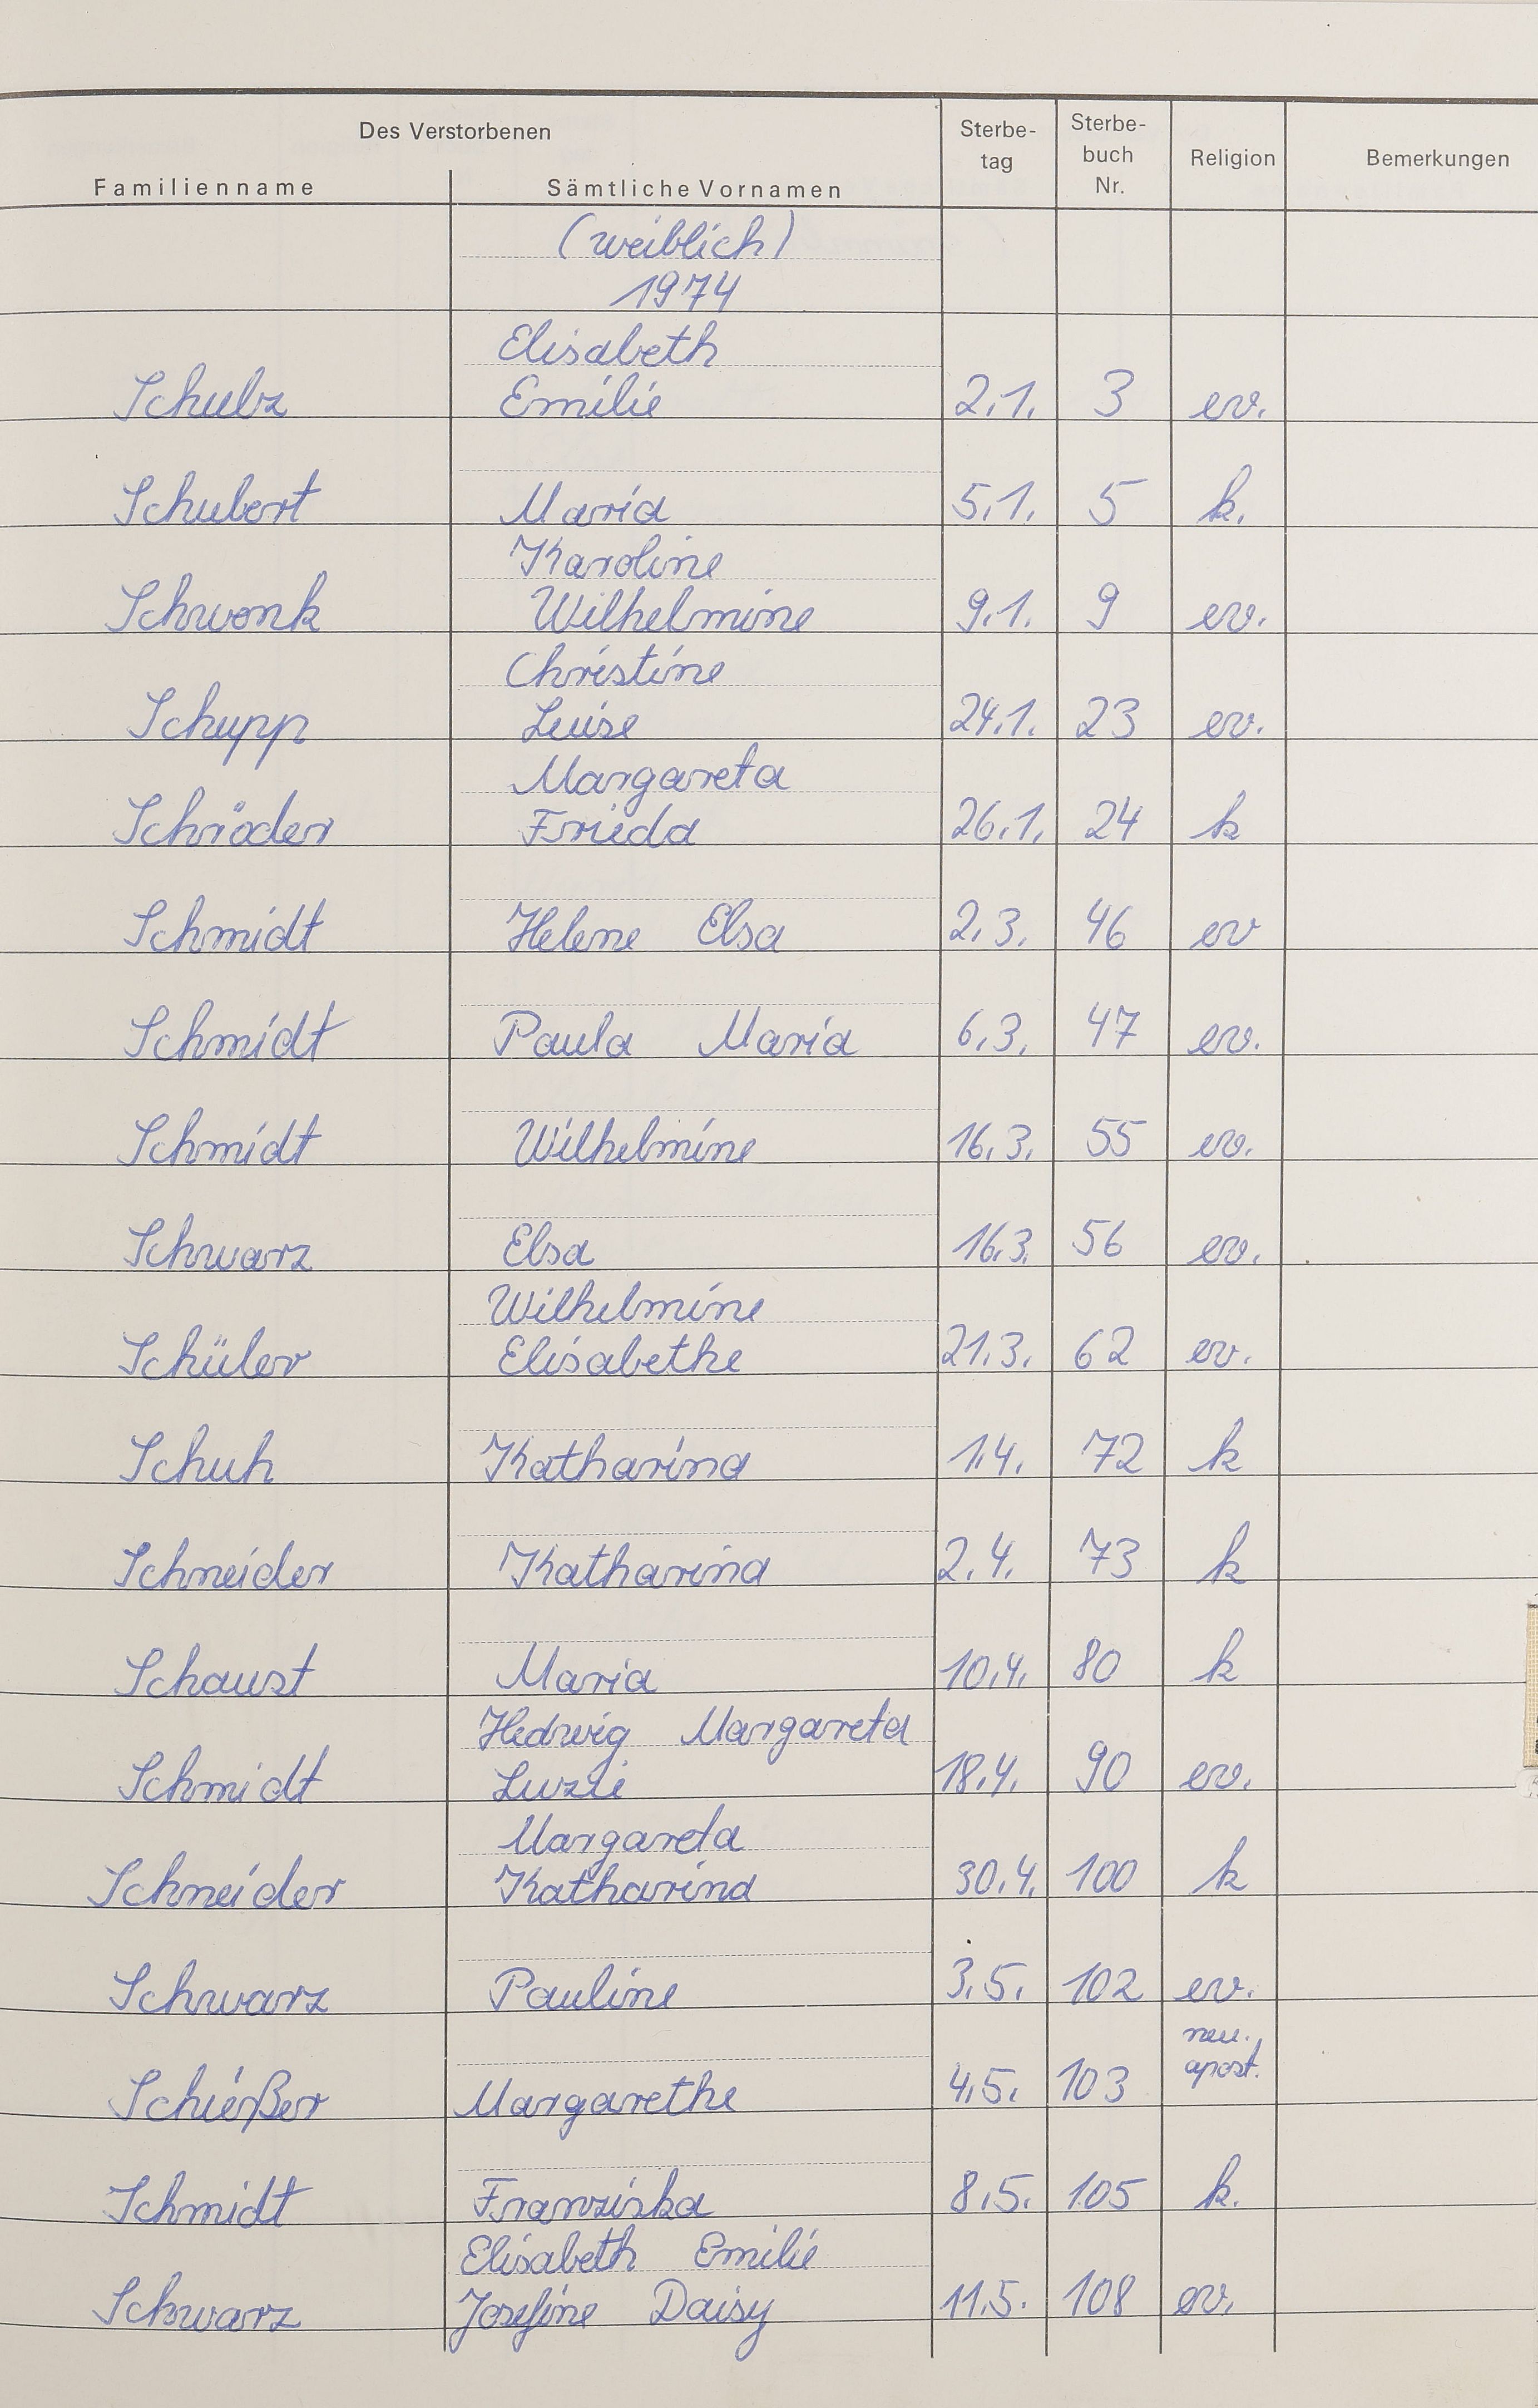 Des Verstorbenen
Familienname Sämtliche Vornamen Sterbe-tag Sterbe-buch Nr. Religion Bemerkungen
(weiblich)
1974
Elisabeth
Schulz Emilie 2.1. 3 ev.
Schubert Maria 5.1. 5 k.
Karoline
Schwenk Wilhelmine 9.1. 9 ev.
Christine
Schupp Luise 24.1. 23 ev.
Margareta
Schröder Frieda 26.1. 24 k
Schmidt Helene Elsa 2.3. 46 ev
Schmidt Paula Maria 6.3. 47 ev.
Schmidt Wilhelmine 16.3. 55 ev.
Schwarz Elsa 16.3. 56 ev.
Wilhelmine
Schüler Elisabethe 21.3. 62 ev.
Schuh Katharina 1.4. 72 k
Schneider Katharina 2.4. 73 k
Schaust Maria 10.4. 80 k
Hedwig Margareta
Schmidt Luzie 18.4. 90 ev.
Margareta
Schneider Katharina 30.4. 100 k
Schwarz Pauline 3.5. 102 ev.
neu.
apost.
Schießer Margarethe 4.5. 103
Schmidt Franziska 8.5. 105 k.
Elisabeth Emilie
Schwarz Josefine Daisy 11.5. 108 ev.